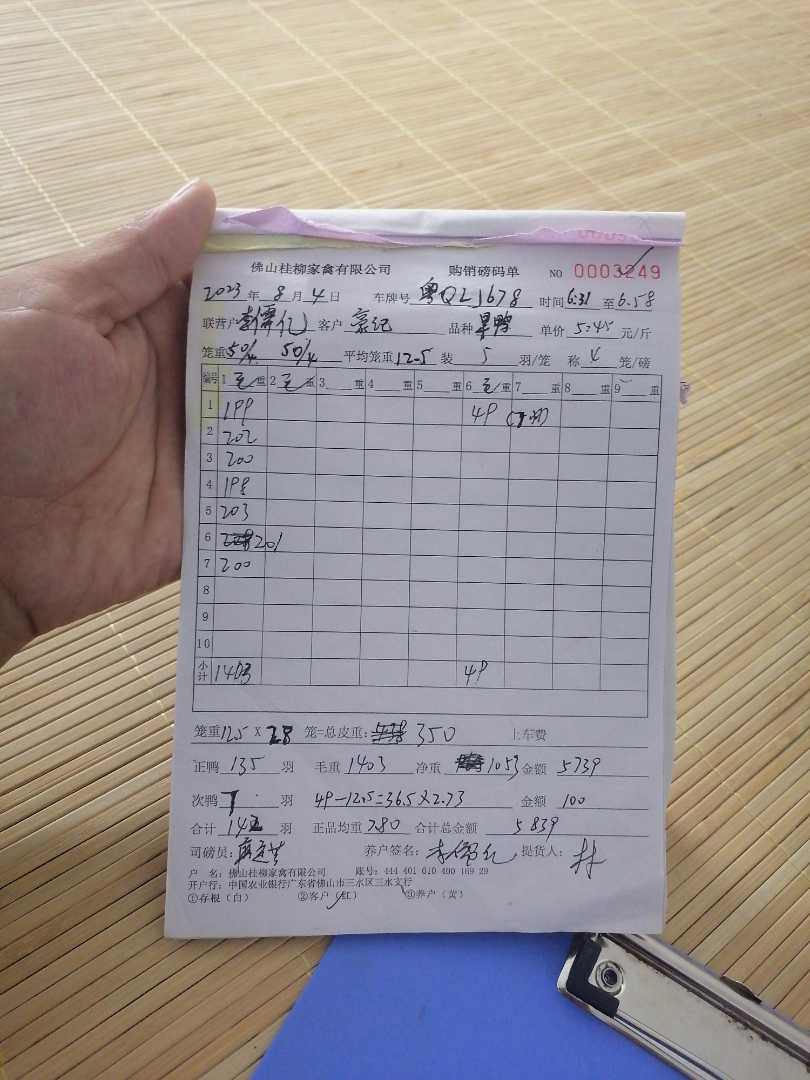 佛山桂柳家禽有限公司 购销磅码单 NO 0003249
2023年8月4日 车牌号 粤QLJ678 时间6:31至6:58
联营户 客户 品种 单价5.45元/斤
笼重50/4 50/4 平均笼重12.5装5羽/笼 称4笼/磅
编号 1毛重 2毛重 3重 4重 5重 6毛重 7重 8重 9重
1 199 49
2 202
3 200
4 198
5 203
6 201
7 200
8
9
10
小计 1403 49
笼重12.5X28笼=总皮重:350 上车费
正鸭135羽 毛重1403 净重1053金额5739
次鸭7羽 49-12.5=36.5×2.73 金额100
合计142羽 正品均重7.80 合计总金额5839
司磅员: 养户签名: 提货人:林
户 名:佛山桂柳家禽有限公司 账号:444 401 010 400 169 29
开户行:中国农业银行广东省佛山市三水区三水支行
①存根(白) ②客户(红) ③养户(黄)